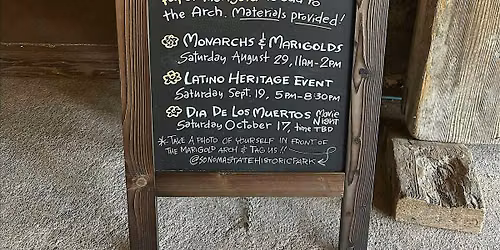 the Arch. Materials provided!
MONARCHS & MARIGOLDS
Saturday August 29, 11AM-2PM
LATINO HERITAGE EVENT
Saturday Sept. 19, 5PM-8:30PM
DIA DE LOS MUERTOS Movie Night
Saturday October 17, time TBD
*TAKE A PHOTO OF YOURSELF IN FRONT OF
THE MARIGOLD ARCH & TAG US!!
@SONOMASTATEHISTORICPARK